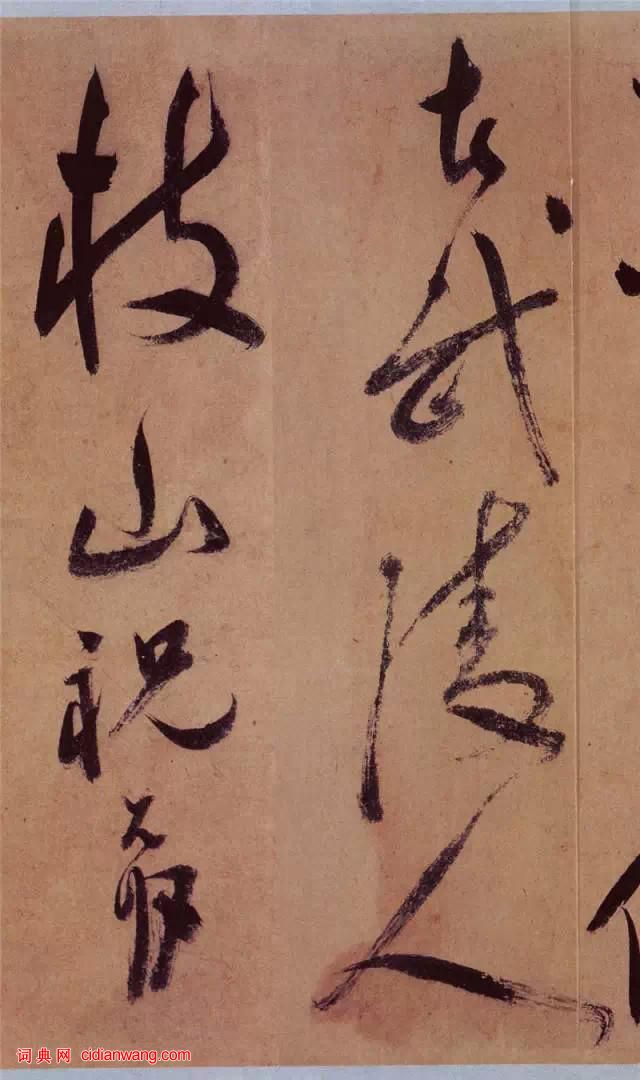 武陵人
枝山祝允明
词典网 cidianwang.com